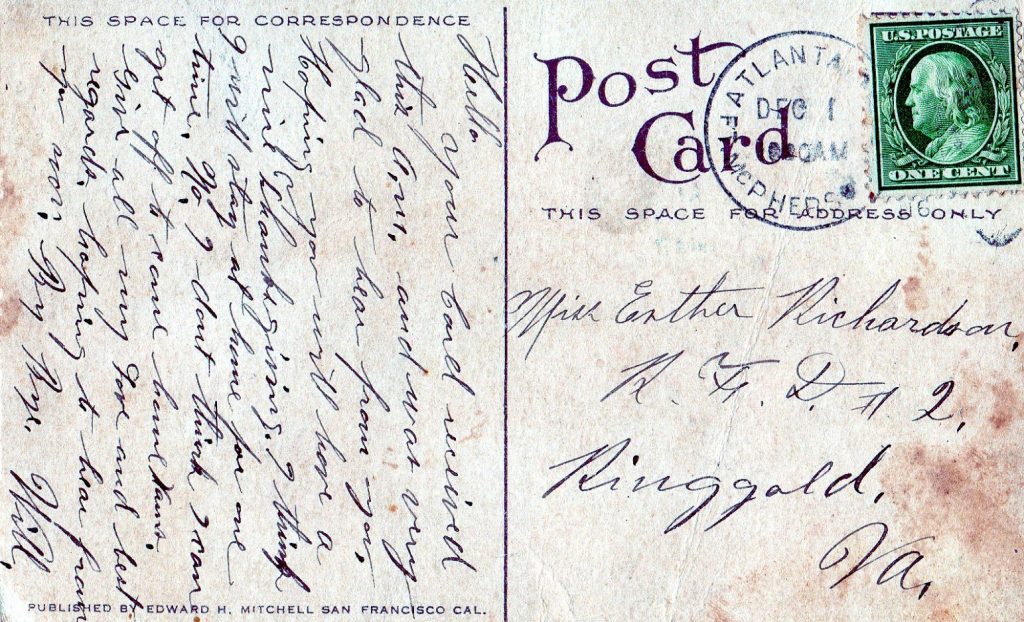 THIS SPACE FOR CORRESPONDENCE
Hello
your card recived
this a.m., and was very
glad to hear from you.
Hoping you will have a
nice Thanksgiving. I think
I will stay at home for one
time. No, I dont think I can
get off to come
Give all my love and best
regards, hoping to hear from
you soon. By Bye. Will.
PUBLISHED BY EDWARD H. MITCHELL SAN FRANCISCO CAL.
Post
Card
THIS SPACE FOR ADDRESS ONLY
ATLANTA
DEC 1
AM
MCPHERS
U.S. POSTAGE
ONE CENT
Miss Esther Richardson,
R. F. D. # 2,
Ringgold,
Va,